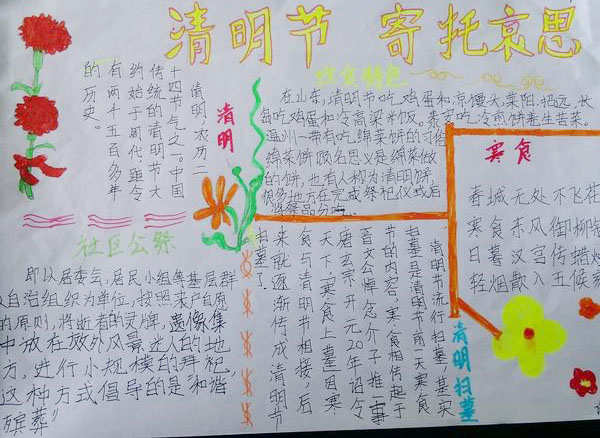 清明节 寄托哀思
饮食特色
清明,农历二
十四节气之一。中国
传统的清明节大
约始于周代,距今
有两千五百多年
的历史。
清明
在山东,清明节吃鸡蛋和凉馒头,莱阳、招远、长
岛吃鸡蛋和冷高粱米饭。泰安吃冷煎饼卷生苦菜。
温州一带有吃绵菜饼的习俗
绵菜饼顾名思义是绵菜做
的饼,也有人称为清明饼,
很多地方在完成祭祀仪式后
将祭品分吃
寒食
春城无处不飞花
寒食东风御柳
日暮汉宫传蜡
轻烟散入五侯家
社区公祭
即以居委会,居民小组等基层群
众自治组织为单位,按照来户自愿
的原则,将逝者的灵牌,遗像集
中放在放外风景迷人的地
方,进行小规模的拜祀,
这种方式倡导的是“和谐
殡葬”
清明节流行扫墓,其实
扫墓是清明节前一天寒食
节的内容,寒食相传起于
晋文公悼念介子推一事
唐玄宗开元20年诏令
天下,寒食上墓。因寒
食与清明相接,后
来就逐渐传成清明节
扫墓了。
清明扫墓